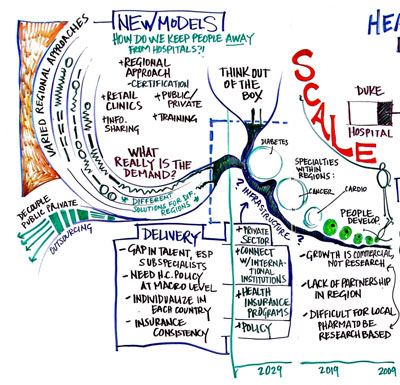 NEW MODELS
HOW DO WE KEEP PEOPLE AWAY
FROM HOSPITALS?!
+REGIONAL
APPROACH
-CERTIFICATION
+RETAIL
CLINICS
+PUBLIC/
PRIVATE
+INFO.
SHARING
+TRAINING
VARIED REGIONAL APPROACHES
WHAT
REALLY IS THE
DEMAND?
DIFFERENT
SOLUTIONS FOR DIF.
REGIONS
DECOUPLE
PUBLIC PRIVATE
OUTSOURCING
THINK OUT
OF THE
BOX
HEA
SCALE
DUKE
HOSPITAL
DIABETES
SPECIALTIES
WITHIN
REGIONS:
CANCER
CARDIO
PEOPLE
DEVELOP
? INFRASTRUCTURE ?
DELIVERY
- GAP IN TALENT, ESP
SUBSPECIALISTS
- NEED H.C. POLICY
AT MACRO LEVEL
- INDIVIDUALIZE IN
EACH COUNTRY
- INSURANCE
CONSISTENCY
+PRIVATE
SECTOR
+CONNECT
W/INTERN-
ATIONAL
INSTITUTIONS
+HEALTH
INSURANCE
PROGRAMS
+POLICY
- GROWTH IS COMMERCIAL,
NOT RESEARCH
- LACK OF PARTNERSHIP
IN REGION
- DIFFICULT FOR LOCAL
PHARMA TO BE
RESEARCH BASED
2029
2019
2009